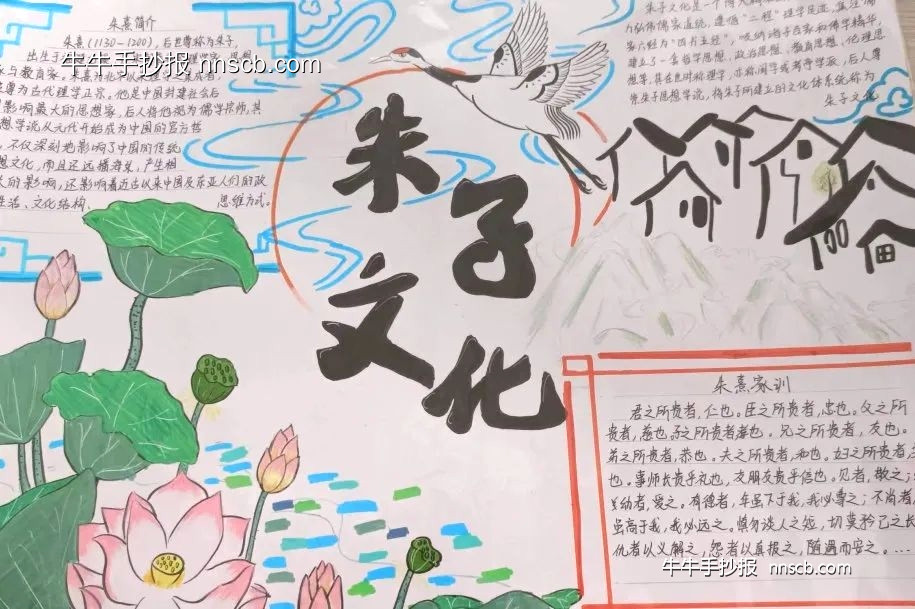 朱熹简介
朱熹(1130-1200),后世尊称为朱子,
牛牛手抄报 nnscb.com
出生于
与教育家。朱熹
尊为古代理学正宗,他是中国封建社会后
影响最大的思想家,后人将他视为儒学宗师,其
想学说从元代开始成为中国的官方哲
,不仅深刻地影响了中国的传统
思想文化,而且还远播海外,产生相
大的影响,还影响着近古以来中国及东亚人们的政
生活、文化结构、思维方式。
朱子文化是一个
为弘佛儒家道统,遵循"二程"理学足迹,
牛牛手抄报 nnscb.com
建立了一套哲学思想、政治思想、教育思想、伦理思
想等,
朱子思想学说,将朱子所建立的文化体系称为
朱子文化
朱子
文化
朱熹家训
君之所贵者,仁也。臣之所贵者,忠也。父之所
贵者,慈也。子之所贵者孝也。兄之所贵者,友也。
弟之所贵者,恭也。夫之所贵者,和也。妇之所贵者,
也。事师长贵乎礼也,交朋友贵乎信也。见老者,敬之;
幼者,爱之。有德者,年虽下于我,我必尊之;不肖者
虽高于我,我必远之。慎勿谈人之短,切莫矜己之长
仇者以义解之,怨者以直报之,随遇而安之。……
牛牛手抄报 nnscb.com